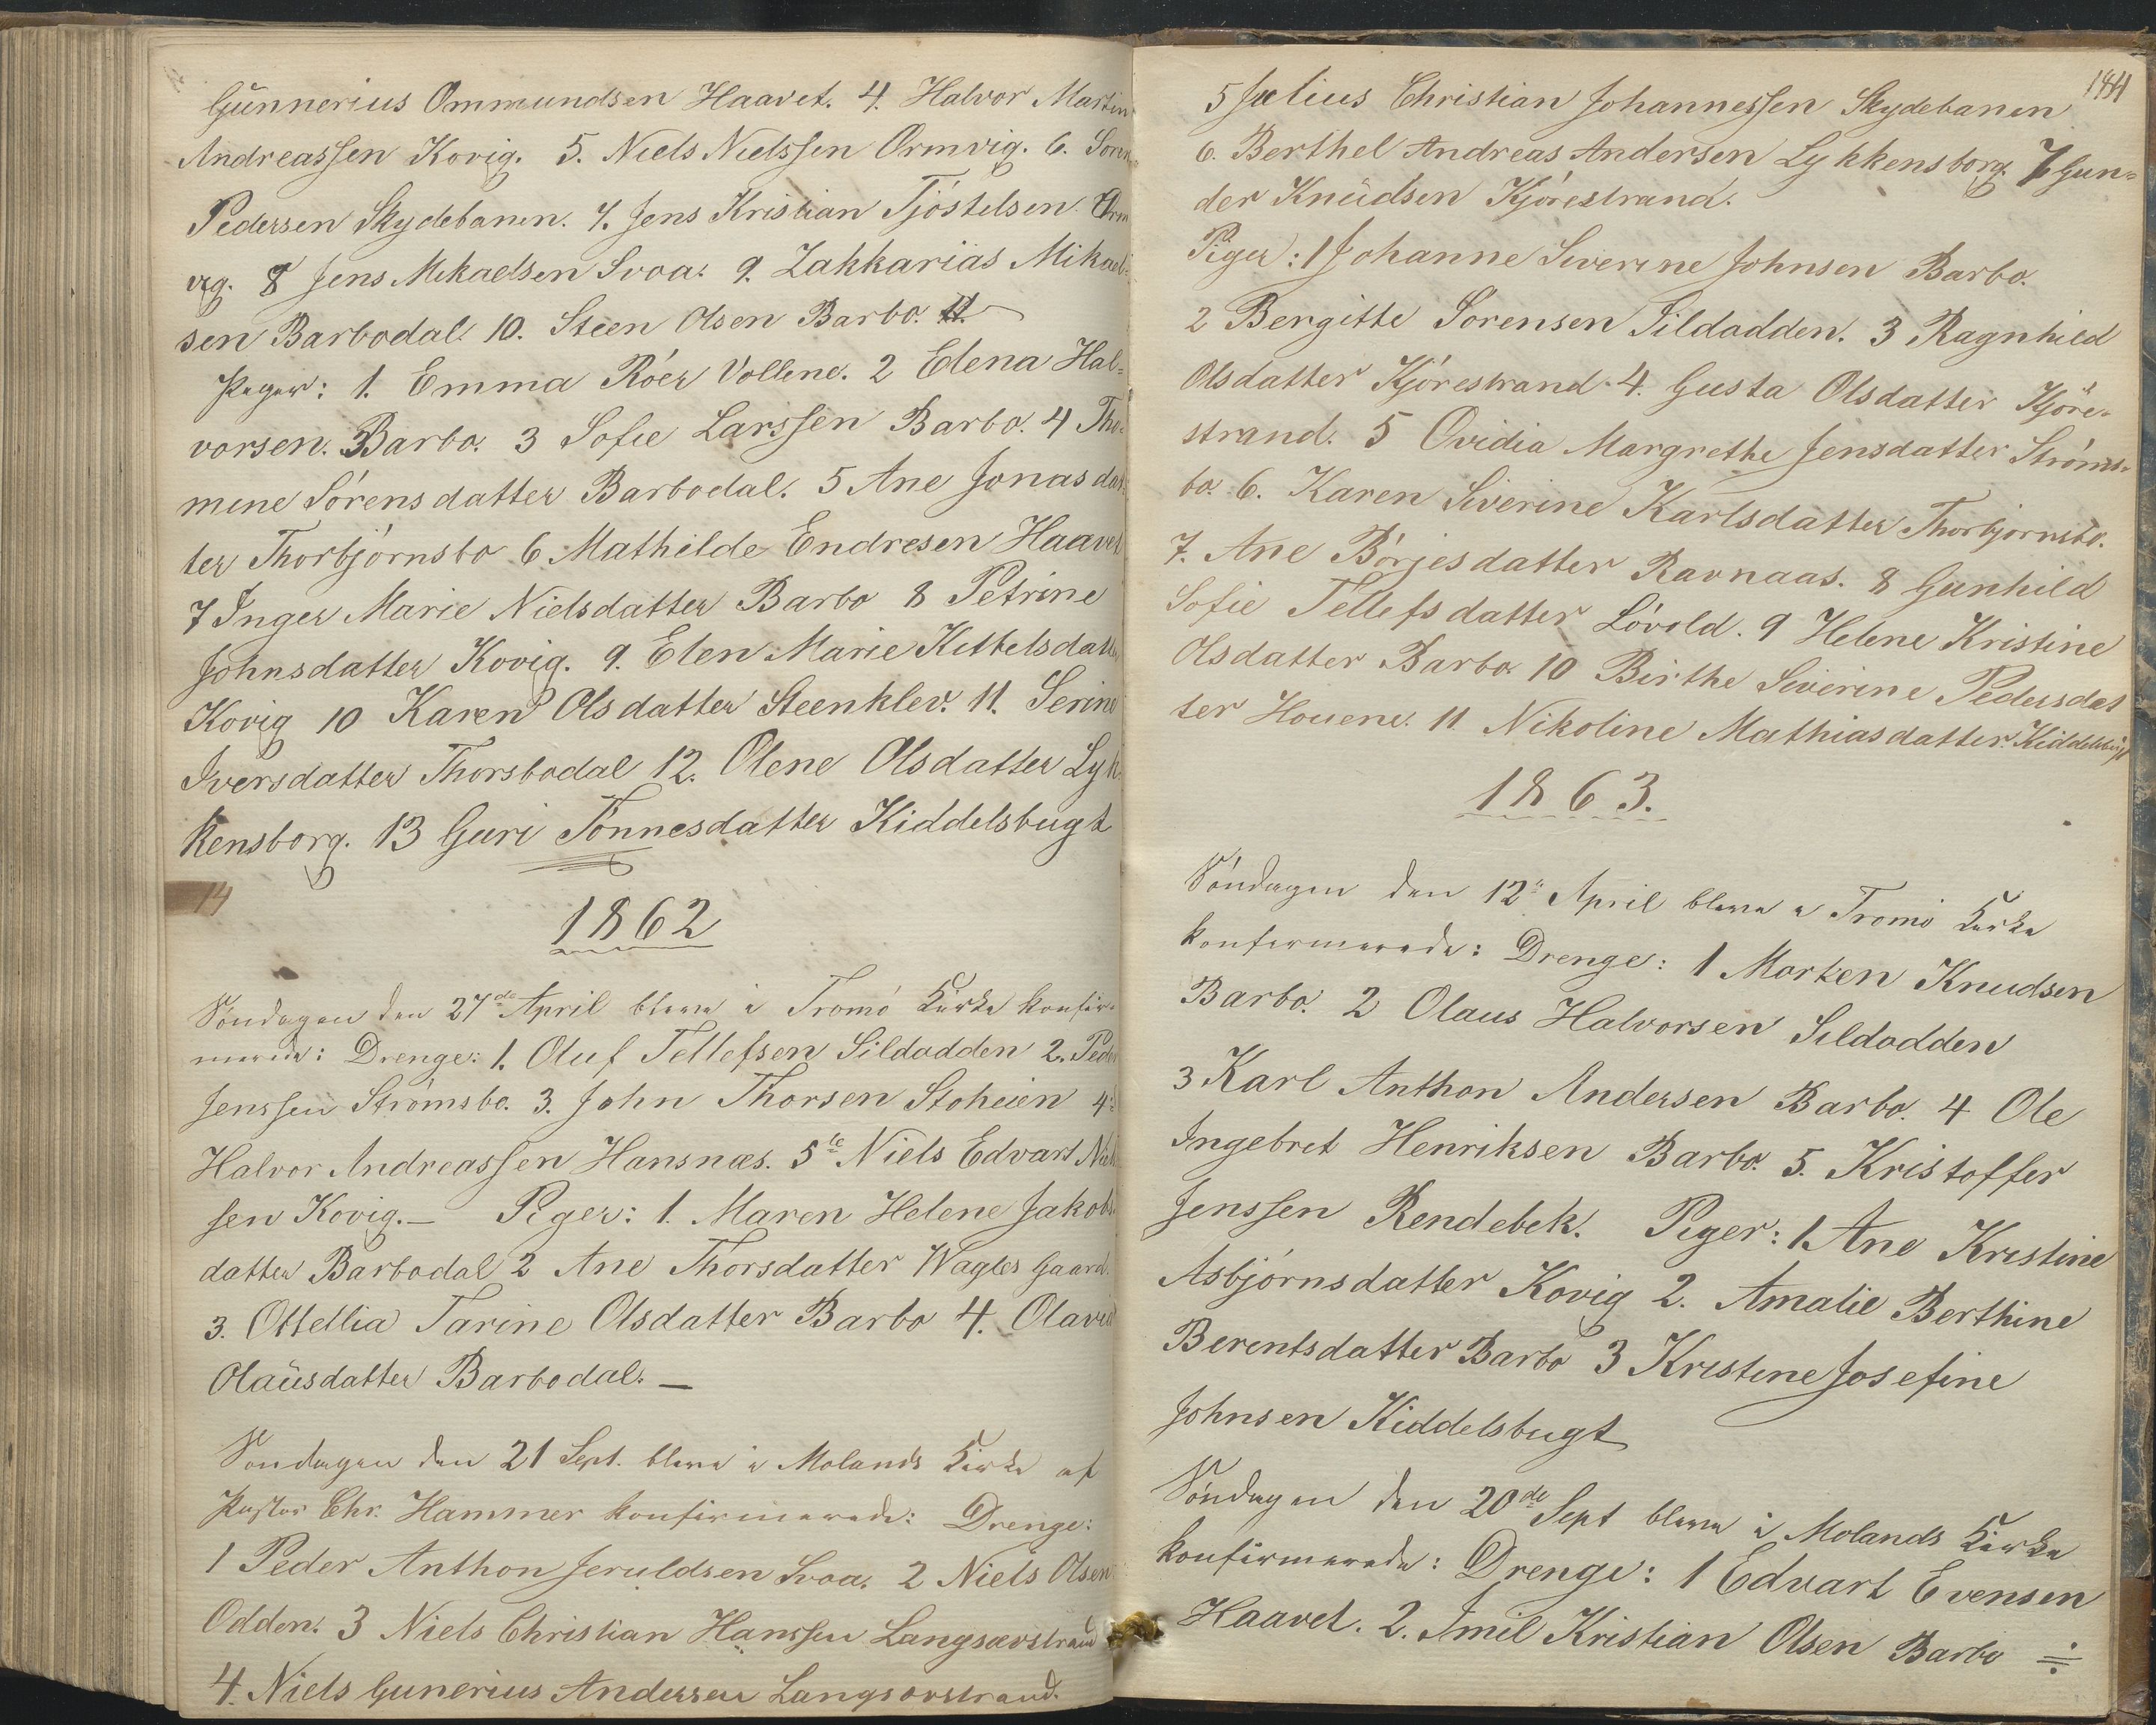 Gunnerius Ommundsen Haavet. 4. Halvor Martin
Andreassen Kovig. 5. Niels Nielssen Ormvig. 6. Sören
Pedersen Skydebanen. 7. Jens Kristian Tjöstelsen Orm
vig. 8 Jens Mikaelsen Svoa. 9. Zakkarias Mikael-
sen Barbodal. 10. Steen Olsen Barbo. 11.
Piger: 1. Emma Röer Vollene. 2 Elena Hal-
vorsen. Barbo. 3 Sofie Larssen Barbo. 4 Tho-
mine Sörensdatter Barbodal. 5 Ane Jonasdat-
ter Thorbjörnsbo 6 Mathilde Endresen Haavet
7 Inger Marie Nielsdatter Barbo 8 Petrine
Johnsdatter Kovig. 9. Elen Marie Kittelsdatter
Kovig 10 Karen Olsdatter Steenklev. 11. Serine
Iversdatter Thorsbodal 12. Olene Olsdatter Lyk-
kensborg. 13 Guri Tönnesdatter Kiddelsbugt
14
1862
Söndagen den 27de April bleve i Tromö Kirke konfir-
merede: Drenge: 1. Oluf Tellefsen Sildodden 2. Peder
Jenssen Strömsbo. 3. John Thorsen Stoheien 4.
Halvor Andreassen Hansnæs. 5te Niels Edvart Niels
sen Kovig. — Piger: 1. Maren Helene Jakobs-
datter Barbodal 2 Ane Thorsdatter Wagles Gaard.
3. Ottellia Tarine Olsdatter Barbo 4. Olavia
Olausdatter Barbodal. —
Söndagen den 21 Sept. bleve i Molands Kirke af
Pastor Chr. Hammer konfirmerede: Drenge:
1 Peder Anthon Jeruldsen Svoa. 2 Niels Olsen
Odden. 3 Niels Christian Hanssen Langsævstrand
4. Niels Gunerius Andersen Langsævstrand.
184
5 Julius Christian Johannessen Skydebanen
6. Berthel Andreas Andersen Lykkensborg. 7 Gun-
der Knudsen Kjörestrand.
Piger: 1 Johanne Severine Johnsen Barbo.
2 Bergitte Sörensen Sildodden. 3 Ragnhild
Olsdatter Kjörestrand. 4. Gusta Olsdatter Kjöre-
strand. 5 Ovidia Margrethe Jensdatter Ströms-
bo. 6. Karen Siverine Karlsdatter Thorbjörnsbo.
7. Ane Börjesdatter Ravnaas. 8 Gunhild
Sofie Tellefsdatter Lövold. 9 Helene Kristine
Olsdatter Barbo. 10 Birthe Siverine Pedersdat
ter Houene. 11 Nikoline Mathiasdatter Kiddelsbugt
1863.
Söndagen den 12te April bleve i Tromö Kirke
konfirmerede: Drenge: 1 Morten Knudsen
Barbo. 2 Olaus Halvorsen Sildodden
3 Karl Anthon Andersen Barbo. 4 Ole
Ingebret Henriksen Barbo. 5. Kristoffer
Jenssen Rendebek. Piger: 1. Ane Kristine
Asbjörnsdatter Kovig 2. Amalie Berthine
Berentsdatter Barbo 3 Kristine Josefine
Johnsen Kiddelsbugt
Söndagen den 20de Sept bleve i Molands Kirke
konfirmerede: Drenge: 1 Edvart Evensen
Haavet. 2. Emil Kristian Olsen Barbo ÷